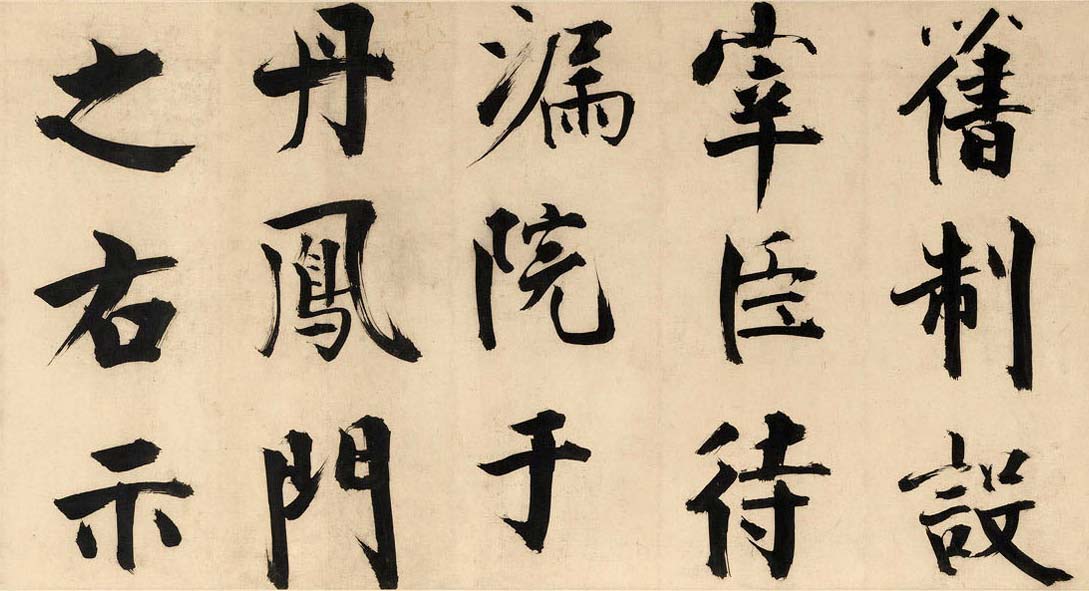 舊制設
宰臣待
漏院于
丹鳳門
之右示